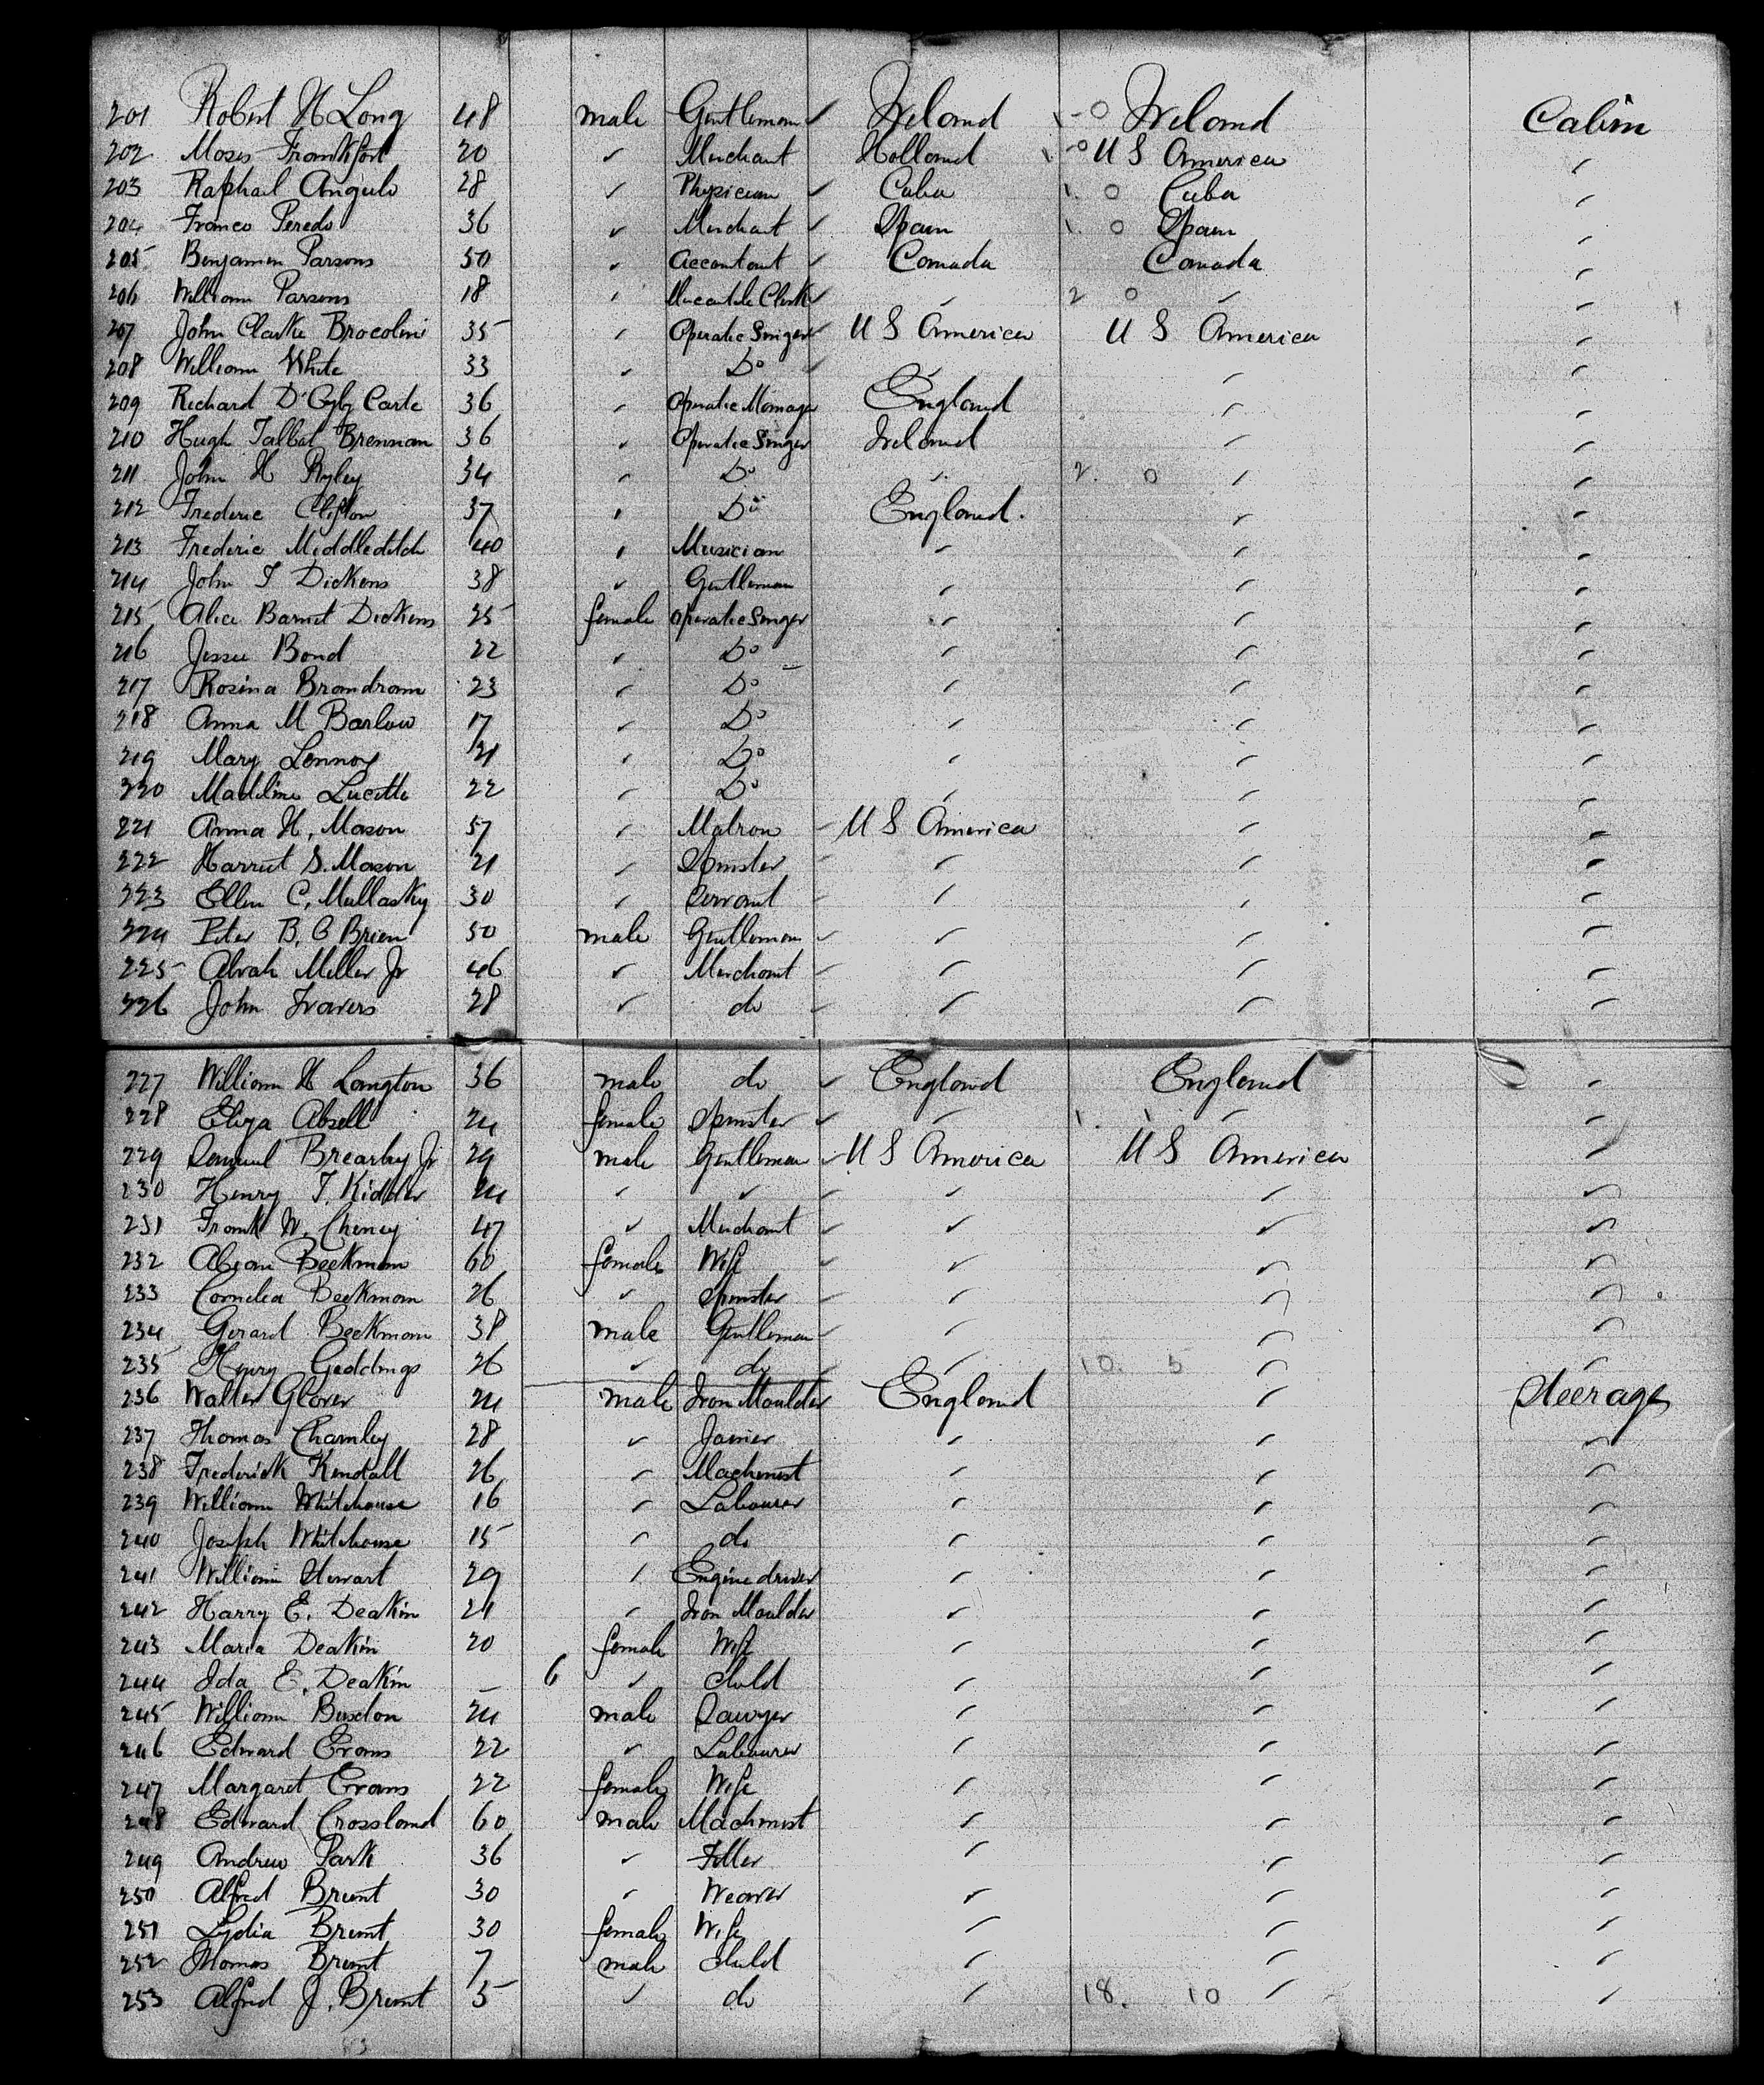 201 Robert H Long 48 male Gentleman ✓ Ireland - 0 Ireland Cabin
202 Moses Frankfort 20 ✓ Merchant Holland - 0 U S America ✓
203 Raphael Angulo 28 ✓ Physician ✓ Cuba 1. 0 Cuba ✓
204 Franco Peredo 36 ✓ Merchant ✓ Spain 1. 0 Spain ✓
205 Benjamin Parsons 50 ✓ Accontant ✓ Canada Canada ✓
206 William Parsons 18 ✓ Mercantile Clerk ✓ ✓ 2 0 ✓ ✓
207 John Clarke Brocolini 35 ✓ Operatic Singer ✓ U S America U S America ✓
208 William White 33 ✓ Do ✓ ✓ ✓ ✓
209 Richard D'Oyly Carte 36 ✓ Operatic Manager England ✓ ✓
210 Hugh Talbot Brennan 36 ✓ Operatic Singer Ireland ✓ ✓
211 John H Ryley 34 ✓ Do ✓ 2. 0 ✓ ✓
212 Frederic Clifton 37 ✓ Do England. ✓ ✓
213 Frederic Middleditch 40 ✓ Musician ✓ ✓ ✓
214 John T Dickens 38 ✓ Gentleman ✓ ✓ ✓
215 Alice Barnet Dickens 25 female Operatic Singer ✓ ✓ ✓
216 Jessie Bond 22 ✓ Do ✓ ✓ ✓
217 Rosina Brandram 23 ✓ Do ✓ ✓ ✓
218 Anna M Barlow 17 ✓ Do ✓ ✓ ✓
219 Mary Lennox 21 ✓ Do ✓ ✓ ✓
220 Madeline Lucette 22 ✓ Do ✓ ✓ ✓
221 Anna H, Mason 57 ✓ Matron ✓ U S America ✓ ✓
222 Harriet S. Mason 21 ✓ Spinster ✓ ✓ ✓ ✓
223 Ellen C, Mullasky 30 ✓ Servant ✓ ✓ ✓ ✓
224 Peter B, O Brien 50 male Gentleman ✓ ✓ ✓ ✓
225 Alvah Miller Jr 46 ✓ Merchant ✓ ✓ ✓ ✓
226 John Travers 28 ✓ do ✓ ✓ ✓ ✓
227 William H Langton 36 male do ✓ England England ✓
228 Eliza Absell 24 female Spinster ✓ ✓ 1. 1 ✓ ✓
229 Samuel Brearley Jr 29 male Gentleman ✓ U S America U S America ✓
230 Henry T, Kidder 24 ✓ ✓ ✓ ✓ ✓ ✓
231 Frank W. Cheney 47 ✓ Merchant ✓ ✓ ✓ ✓
232 Beekman 60 female Wife ✓ ✓ ✓ ✓
233 Cornelia Beekman 26 ✓ Spinster ✓ ✓ ✓ ✓
234 Gerard Beekman 38 male Gentleman ✓ ✓ ✓ ✓
235 Henry Geddings 26 ✓ do ✓ ✓ 10. 5 ✓ ✓
236 Walter Glover 24 male Iron Moulder England ✓ Steerage
237 Thomas Charnley 28 ✓ Joiner ✓ ✓ ✓
238 Frederick Kendall 26 ✓ Machinist ✓ ✓ ✓
239 William Whitehouse 16 ✓ Labourer ✓ ✓ ✓
240 Joseph Whitehouse 15 ✓ do ✓ ✓ ✓
241 William Stewart 29 ✓ Engine driver ✓ ✓ ✓
242 Harry E. Deakin 21 ✓ Iron Moulder ✓ ✓ ✓
243 Maria Deakin 20 female Wife ✓ ✓ ✓
244 Ida E. Deakin - 6 ✓ Child ✓ ✓ ✓
245 William 24 male Sawyer ✓ ✓ ✓
246 Edward Evans 22 ✓ Labourer ✓ ✓ ✓
247 Margaret Evans 22 female Wife ✓ ✓ ✓
248 Edward Crossland 60 male Machinist ✓ ✓ ✓
249 Andrew Park 36 ✓ ✓ ✓ ✓
250 Alfred Brunt 30 ✓ Weaver ✓ ✓ ✓
251 Lydia Brunt 30 female Wife ✓ ✓ ✓
252 Thomas Brunt 7 male Child ✓ ✓ ✓
253 Alfred J. Brunt 5 ✓ do ✓ 18. 10 ✓ ✓